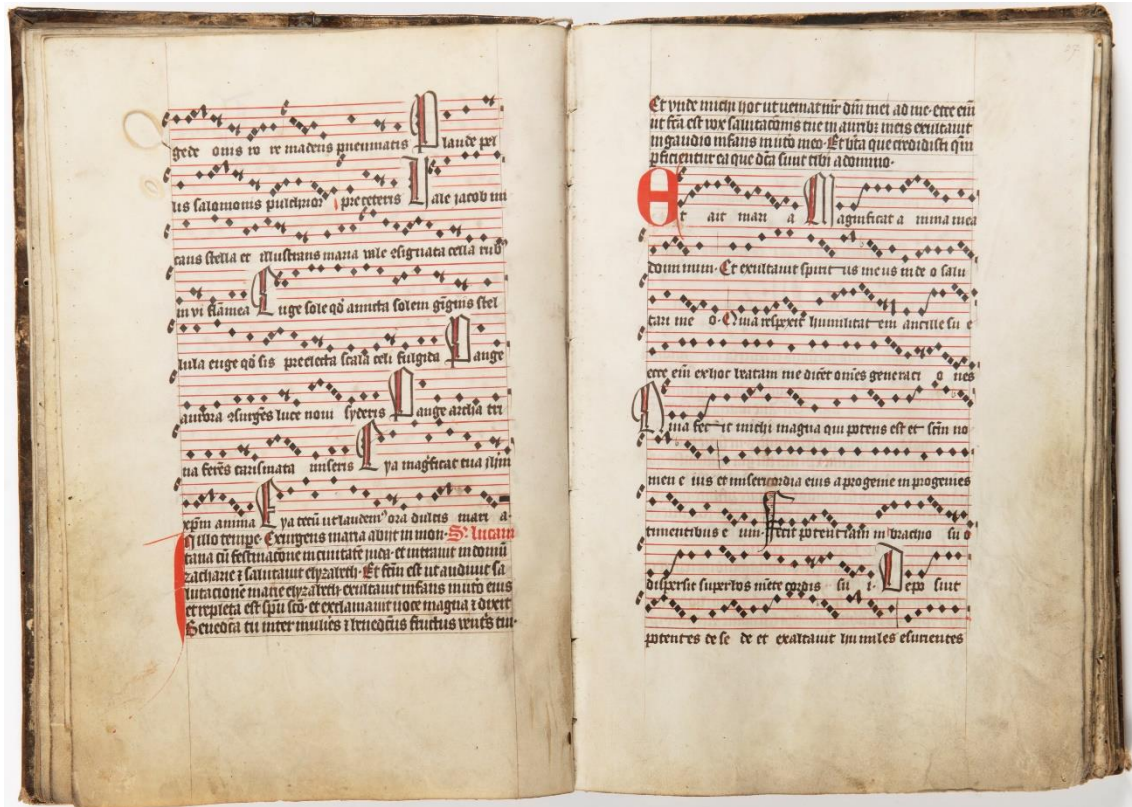 gede onis ro re madens pneumatis Plaude pel
lis salomonis pulchrior pre ceteris Vale jacob mi
cans stella et illustrans maria vale signata cella rub
in vi flamea Euge sole qd amicta solem gignis stel
lula euge qd sis preelecta scala celi fulgita Pange
aurora surges luce novi syderis Pange archa tri
na feres carismata miseris Eya magficat tua
xpm anima Eya tecu ut laudem ora dulcis mari a
In illo tempe. Exurgens maria abiit in mon. Sc lucam
tana cu festinacione in civitate juda. et intravit in domu
zacharie & salutavit elyzabeth. Et fcm est ut audivit sa
lutacione marie elyzabeth exultavit infans in utero eius
et repleta est spu sco. et exclamavit voce magna & dixit
Benedcta tu inter mulies & benedcus fructus ventis tui.
27
Et unde michi hoc ut veniat mr dni mei ad me. ecce eni
ut fca est vox salutacionis tue in aurib3 meis exultavit
in gaudio infans in utero meo. Et bta que credidisti qm
pficientur ea que dcta sunt tibi a domino.
Et ait mari a Magnificat a nima mea
dominum. Et exultavit spirit us me us in de o salu
tari me o. Quia respexit humilitat em ancille su e
ecce eni ex hoc beatam me dicet omes generaci o nes
Quia fec it michi magna qui potens est et scm no
men e ius et misericordia eius a progenie in progenies
timentibus e um. Fecit potentiam in brachio su o
dispersit superbos mete cordis su i. Depo suit
potentes de se de et exaltavit humiles esurientes